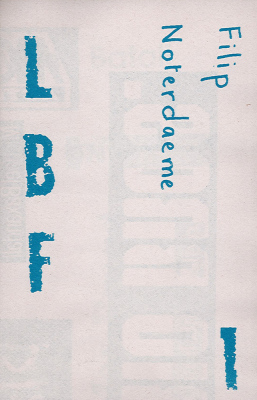 Filip
Noterdaeme
L
B
F
I